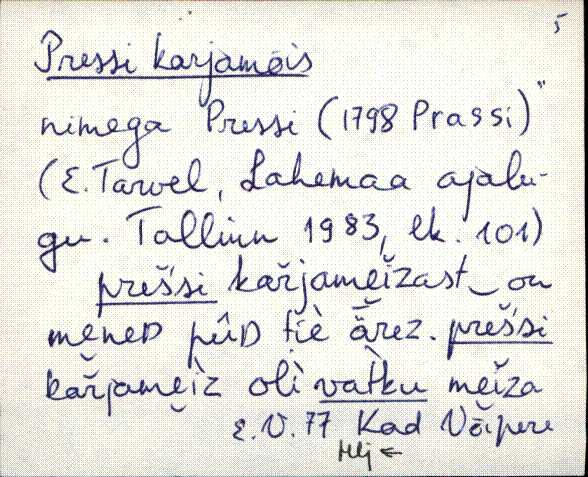 5
Pressi karjamõis
nimega Pressi (1798 Prassi)"
(E. Tarvel, Lahemaa ajalu-
gu. Tallinn 1983, lk. 101)
preš́si kaŕjameĭzast‿on
meneD pûD tiè ä̆̄rez. preš́si
kaŕjamĕìz olì vat̀ku meĭza
E.V. 77 Kad Võipere
Hlj ←